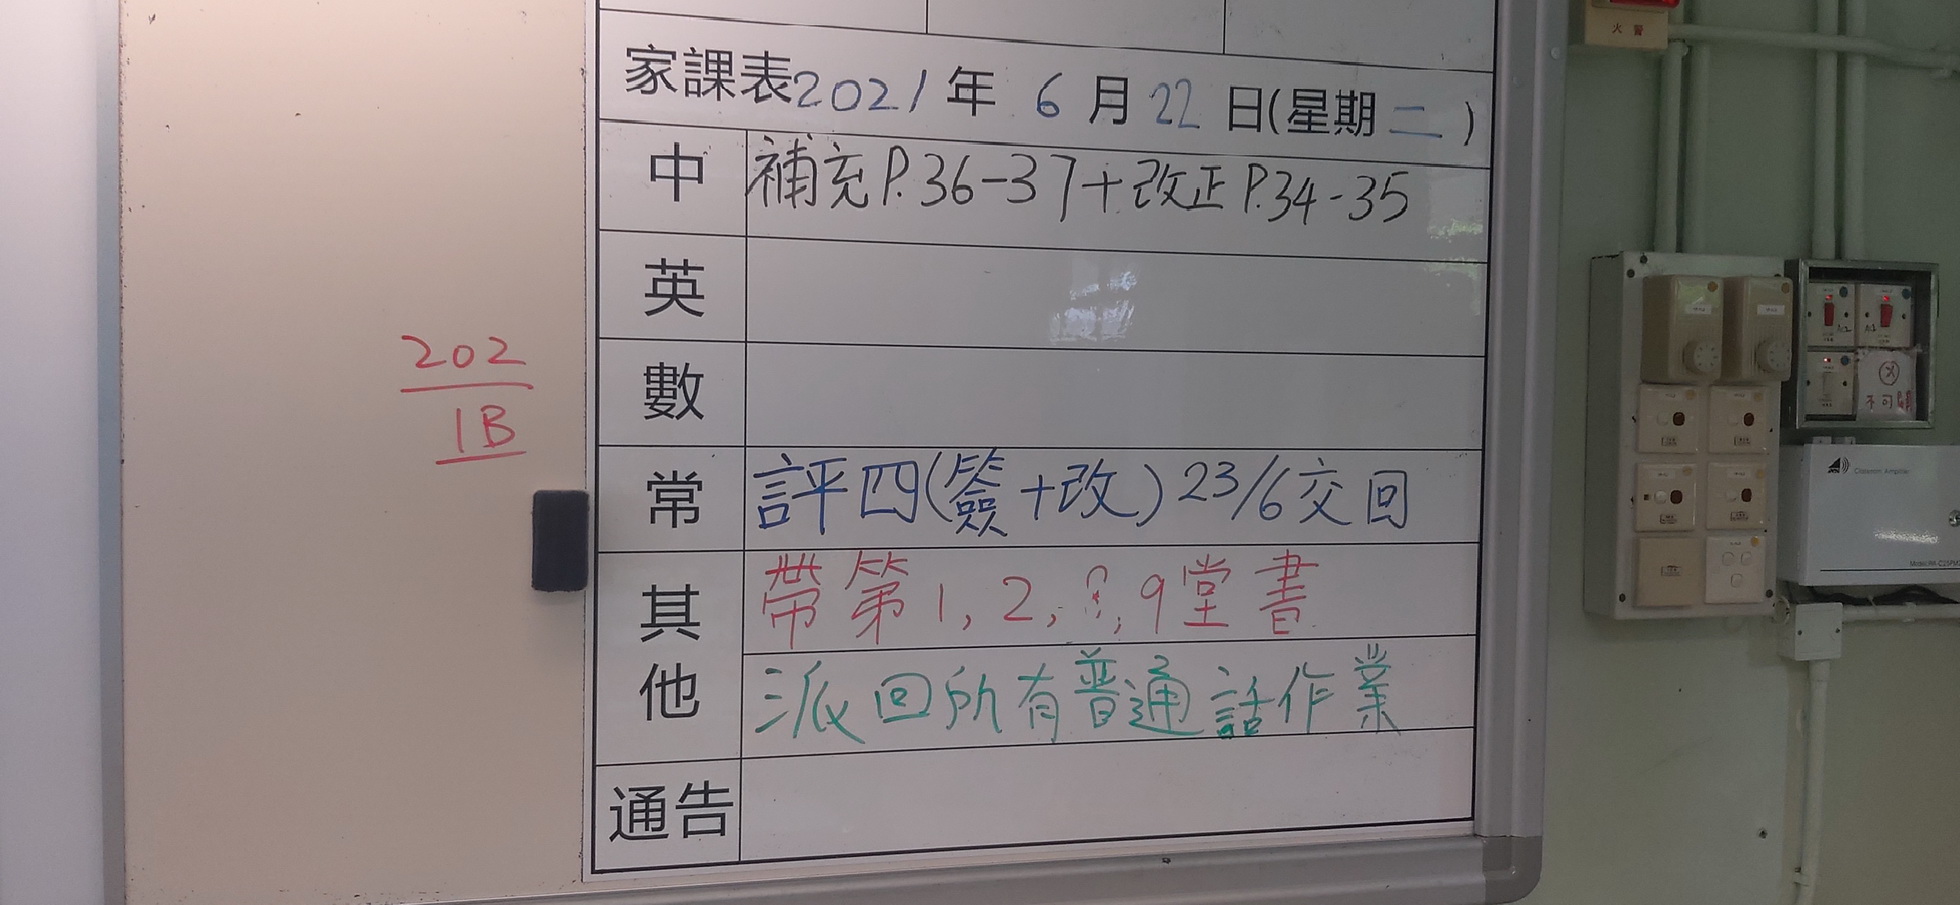 火警
家課表2021年 6月22日(星期二)
中 補充P.36-37+改正P.34-35
英
數
常 評四(簽+改)23/6交回
其他 帶第1,2, ,9堂書
派回所有普通話作業
通告
202
1B
不可
Classroom Amplifier